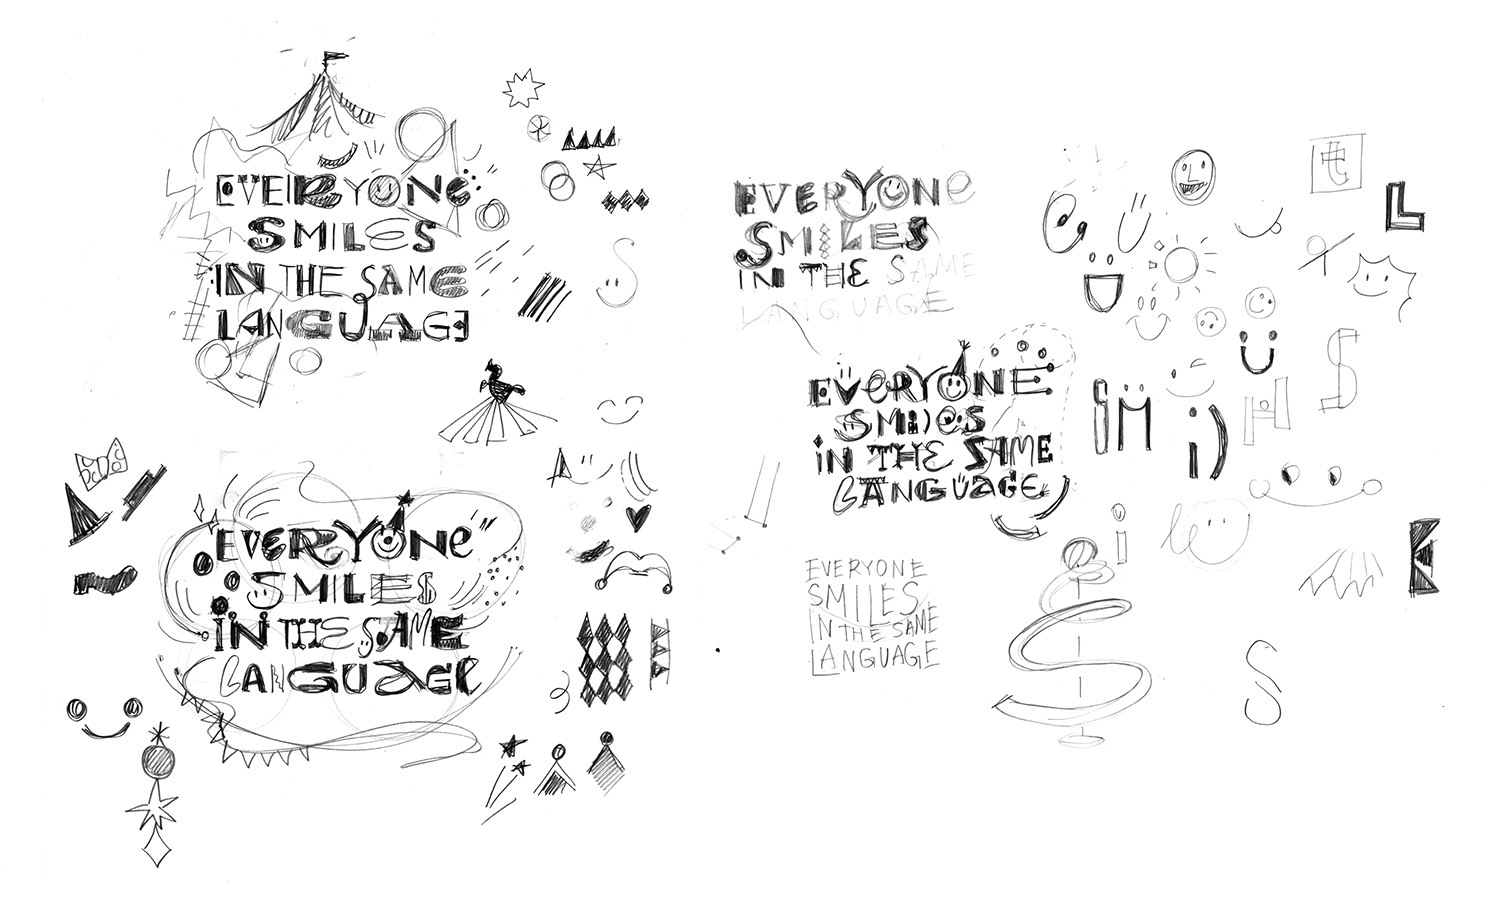 EVERYONE
SMILES
IN THE SAME
LANGUAGE
EVERYONE
SMILES
IN THE SAME
LANGUAGE
EVERYONE
SMILES
IN THE SAME
LANGUAGE
EVERYONE
SMILES
IN THE SAME
LANGUAGE
EVERYONE
SMILES
IN THE SAME
LANGUAGE
L
S
SM
H
i
S